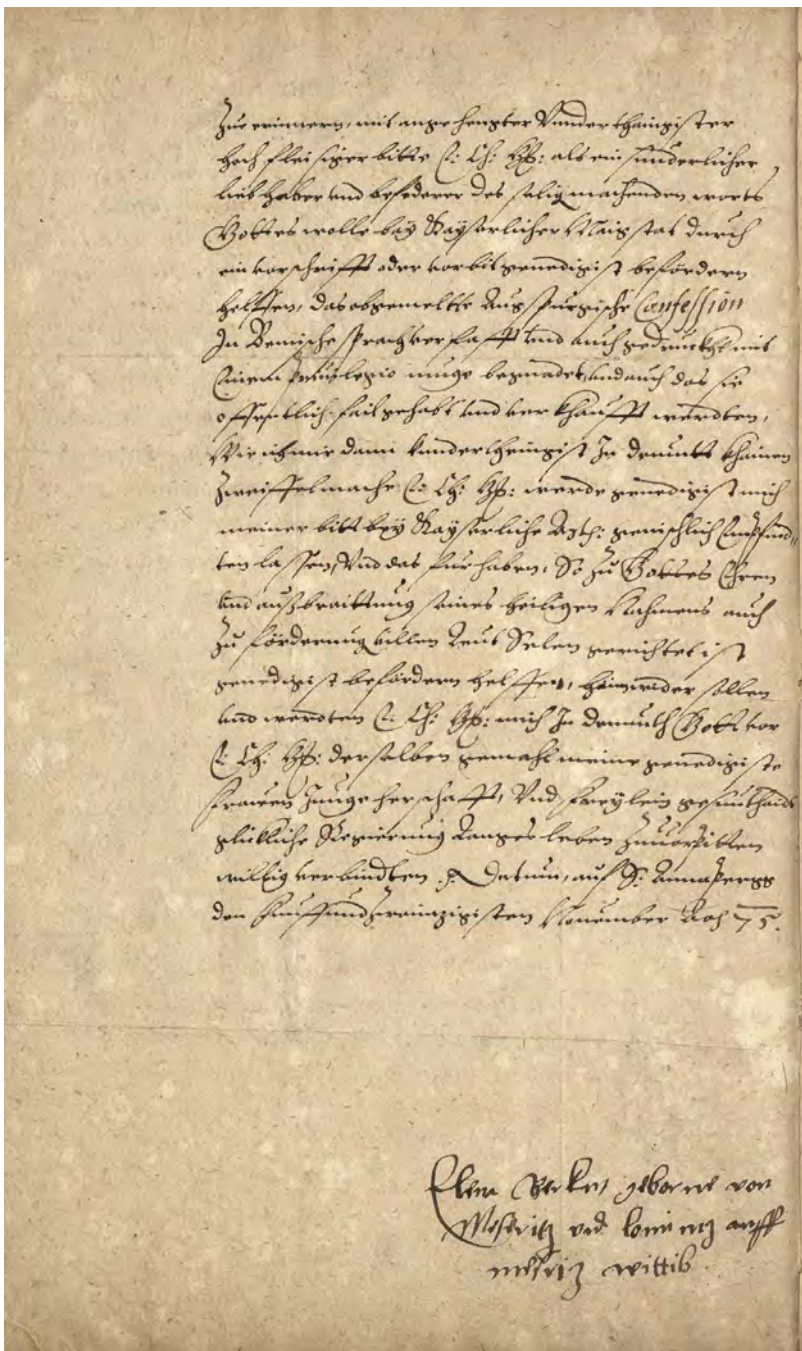 Zue erinnern, mit angehengter Vnderthänigister
hoch fleisiger bitte E: Ch: G: als ein sunderlicher
liebhaber vnd befederer des seligmachenden worts
Gottes wolle bey Kayserlicher Maigstat durch
ein vorschrifft oder vorbit genedigist befördern
helffen, das obgemeltte Augspurgische Confession
In Bemische sprach verfasst vnd auch gedruckht mit
Einem Priuilegio muge begnadet, vnd auch das sie
offentlich fail gehabt vnd verkhaufft werdten,
Wie ich mir dann vnderthenigist In demutt khainen
Zweiffel mache E: Ch: G: werde genedigist mich
meiner bitt bey Kayserliche
ten lassen, Vnd das furhaben, So zu Gottes Ehren
vnd außbraittung seines heiligen Nahmens auch
Zu förderung villen Selen gerichtet ist
genedigist befördern helffen, hinwider sollen
vnd werdten E: Ch: G: mich In demuth Gott vor
E: Ch: G: derselben gemahl meine genedigiste
frauen Junge herschafft, Vnd freylein gesunthaidt
glükliche Regierung langes leben Zuuorbitten
willig verbindten. Datum, auf S: Annaperg
den funffundzwainzigisten Nouember 75.
geborne von
Meseritz vnd auff
wittib